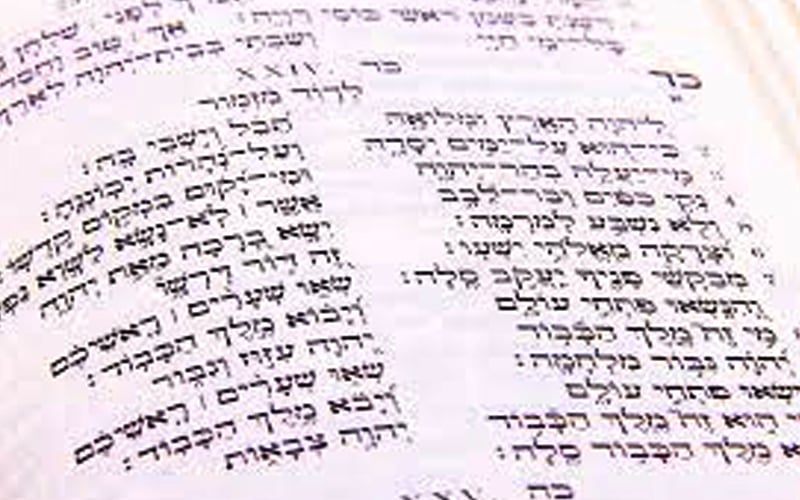 לפני שלחן
דשנת בשמן ראשי כוסי רויה׃
אך ׀ טוב וחסד
כל־ימי חיי
ושבתי בבית־יהוה לארך
כד
כד XXIV.
לדוד מזמור
ליהוה הארץ ומלואה
תבל וישבי בה׃
כי־הוא על־ימים יסדה
ועל־נהרות יכוננה׃
מי־יעלה בהר־יהוה
ומי־יקום במקום קדשו׃
נקי כפים ובר־לבב
אשר ׀ לא־נשא לשוא
ולא נשבע למרמה׃
ישא ברכה מאת יהוה
וצדקה מאלהי ישעו׃
זה דור דרשו
מבקשי פניך יעקב סלה׃
שאו שערים ׀ ראשיכם
והנשאו פתחי עולם
ויבוא מלך הכבוד׃
מי זה מלך הכבוד
יהוה עזוז וגבור
יהוה גבור מלחמה׃
שאו שערים ׀ ראשיכם
ושאו פתחי עולם
ויבא מלך הכבוד׃
הוא זה מלך הכבוד
יהוה צבאות
מלך הכבוד סלה׃
כה XXV.